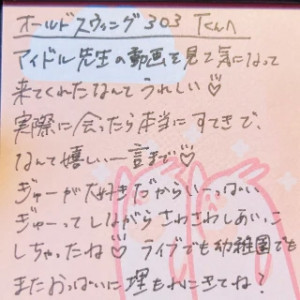 オールドスウィング303 Tくんへ
アイドル先生の動画を見て気になって
来てくれたなんてうれしい♡
実際に会ったら本当にすてきで、
なんて嬉しい一言まで♡
ぎゅーが大好きだからいーっぱい
ぎゅーってしながらさわさわしあいっこ
しちゃったね♡ ライブでも幼稚園でも
またおっぱいに埋もれにきてね?